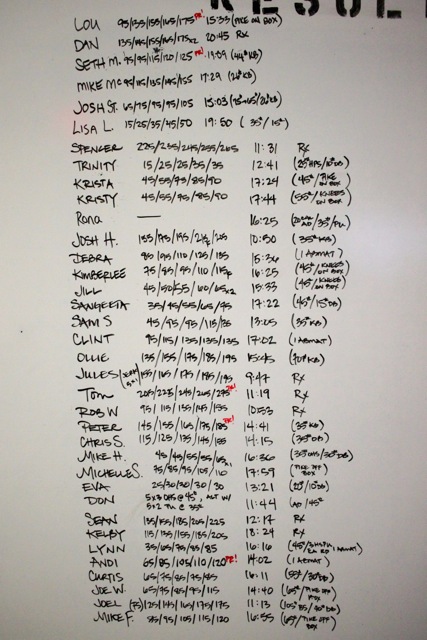 RESUL
LOU 95/135/155/165/175 PR! 15:33 (PIKE ON BOX)
DAN 135/145/155/165/175x2 20:45 Rx
SETH M. 95/95/115/120/125 PR! 19:09 (44# KB)
MIKE Mc 95/115/135/145/155 17:29
JOSH ST. 65/75/95/95/105 15:03
LISA L. 15/25/35/45/50 19:50 (35#/15#)
SPENCER 225/235/245/255/265 11:31 Rx
TRINITY 15/25/25/35/35 12:41
KRISTA 45/55/75/85/90 17:24 (45#/PIKE ON BOX)
KRISTY 45/55/75/85/90 17:44 (55#/KNEES ON BOX)
Rana — 16:25
JOSH H. 10:50 (35# KB)
DEBRA 85/95/110/125/135 15:36 (1 ABMAT)
KIMBERLEE 75/85/95/110/115 16:25 (45#/KNEES ON BOX)
JILL 45/50/55/60/65x2 15:33 (45#/KNEES ON BOX)
SANGEETA 35/45/55/65/75 17:22 (45#/15# DB)
SAM S 45/75/95/115/135 13:05 (35# KB)
CLINT 95/115/135/135/135 17:02 (1 ABMAT)
OLLIE 135/155/175/185/195 15:45 (70# KB)
JULES 155/165/175/185/195 9:47 Rx
Tom 205/225/245/265/275 PR! 11:19 Rx
ROB W 95/115/135/145/155 10:53 Rx
PETER 145/155/165/175/185 PR! 14:41 (35# KB)
CHRIS S. 115/125/135/145/155 14:15 (35# DB)
MIKE H. 45/45/55/55/65 16:36
MICHELLE S. 75/85/95/105/110 x1 17:59 (PIKE OFF BOX)
EVA 25/30/30/30/30 13:21
DON 5x3 OHS @ 45#, ALT W/ 11:44
5+2 TH @ 35#
SEAN 135/155/185/205/225 12:17 Rx
KELBY 115/135/155/185/205 18:24 Rx
LYNN 35/65/75/85/85 16:16
ANDI 65/85/105/110/120 PR! 14:02 (1 ABMAT)
CURTIS 65/75/85/75/85 16:11
JOE W. 65/75/85/95/115 14:40 (65#/PIKE OFF BOX)
JOEL (75)125/145/165/175/175 11:13
MIKE F. 85/95/105/115/120 16:55 (65#/PIKE OFF BOX)